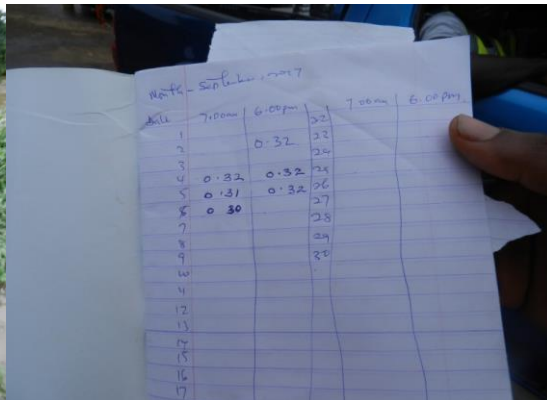 Month - September, 2017
Date 7.00am 6.00pm 22 7.00am 6.00pm
1 22
2 0.32 24
3
4 0.32 0.32 25
5 0.31 0.32 26
6 0.30 27
7 28
8 29
9 30
10
11
12
13
14
15
16
17